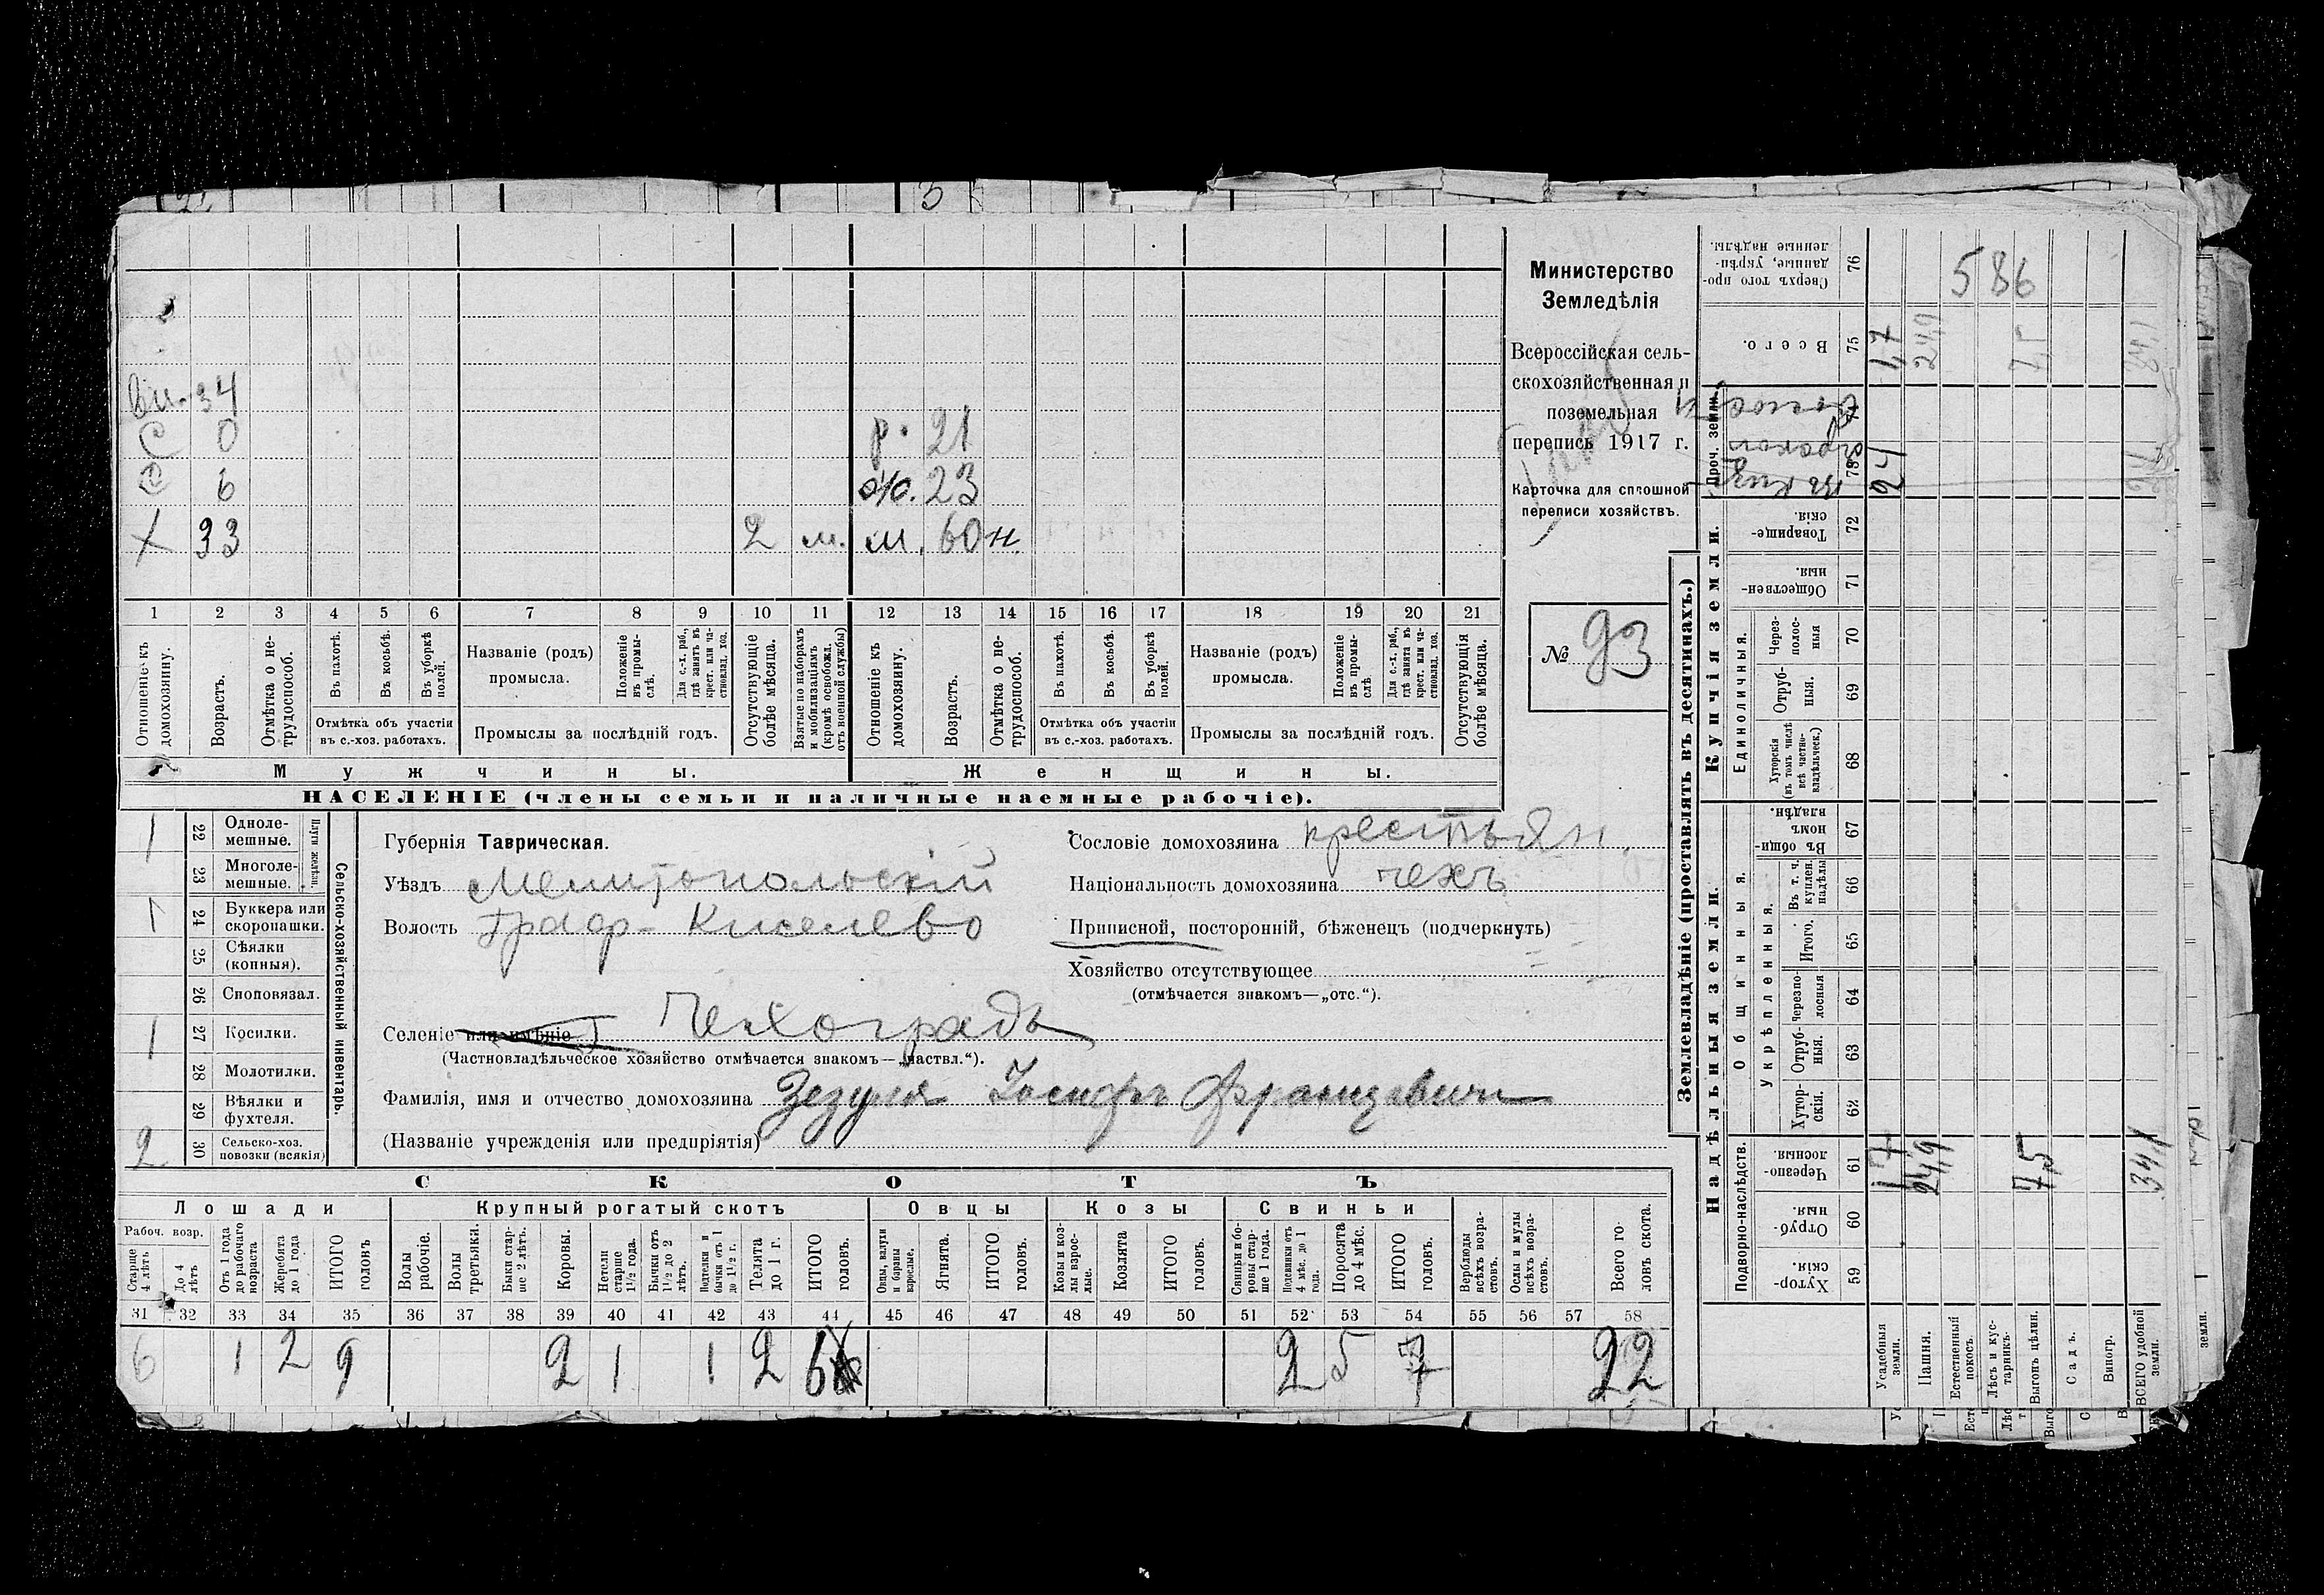 Министерство
Земледѣлія
Всероссійская сель-
скохозяйственная и
поземельная
перепись 1917 г.
Карточка для сплошной
переписи хозяйствъ.
№ 93
34
С 0
р. 21
6
23
Х 33 2 м. м. 60 н.
1 2 3 4 5 6 7 8 9 10 11 12 13 14 15 16 17 18 19 20 21
Отношеніе къ домохозяину.
Возрастъ.
Отмѣтка о не-трудоспособ.
Въ пахотѣ.
Въ косьбѣ.
Въ уборкѣ полей.
Отмѣтка объ участіи въ с.-хоз. работахъ.
Названіе (родъ) промысла.
Положеніе въ промы-слѣ.
Для с.-х. раб., гдѣ занятъ въ крест. или ча-стновлад. хоз.
Промыслы за послѣдній годъ.
Отсутствующіе болѣе мѣсяца.
Взятые по наборамъ и мобилизаціямъ (кромѣ освобожд. отъ военной службы)
Отношеніе къ домохозяину.
Возрастъ.
Отмѣтка о не-трудоспособ.
Въ пахотѣ.
Въ косьбѣ.
Въ уборкѣ полей.
Отмѣтка объ участіи въ с.-хоз. работахъ.
Названіе (родъ) промысла.
Положеніе въ промы-слѣ
Для с.-х. раб., гдѣ занята въ крест. или ча-стновлад. хоз.
Промыслы за послѣдній годъ.
Отсутствующія болѣе мѣсяца.
Мужчины. Женщины.
НАСЕЛЕНІЕ (члены семьи и наличные наемные рабочіе).
Сельско-хозяйственный инвентарь.
Плуги желѣзн.
1 22 Одноле-мешные.
23 Многоле-мешные.
1 24 Буккера или скоропашки.
25 Сѣялки (конныя).
26 Сноповязал.
1 27 Косилки.
28 Молотилки.
29 Вѣялки и фухтеля.
2 30 Сельско-хоз. повозки (всякія)
Губернія Таврическая.
Уѣздъ Мелитопольскій
Волость Граф-Киселево
Селеніе или имѣніе Чехоградъ
(Частновладѣльческое хозяйство отмѣчается знакомъ—„частвл.“).
Фамилія, имя и отчество домохозяина Зезуля Іосифъ Францевичъ
(Названіе учрежденія или предпріятія)
Сословіе домохозяина крестьян.
Національность домохозяина чехъ
Приписной, посторонній, бѣженецъ (подчеркнуть)
Хозяйство отсутствующее
(отмѣчается знакомъ—„отс.“).
СКОТЪ
Лошади Крупный рогатый скотъ Овцы Козы Свиньи
Рабоч. возр.
Старше 4 лѣтъ
До 4 лѣтъ
Отъ 1 года до рабочаго возраста
Жеребята до 1 года
ИТОГО головъ
Волы рабочіе.
Волы третьяки.
Быки стар-ше 2 лѣтъ.
Коровы.
Нетели старше 1½ года.
Бычки отъ 1½ до 2 лѣтъ.
Подтелки и бычки отъ 1 до 1½ г.
Телята до 1 г.
ИТОГО головъ.
Овцы, валухи и бараны взрослые.
Ягнята.
ИТОГО головъ.
Козы и коз-лы взрос-лые.
Козлята
ИТОГО головъ.
Свиньи и бо-ровы стар-ше 1 года.
Подсвинки отъ 4 мѣс. до 1 года.
Поросята до 4 мѣс.
ИТОГО головъ.
Верблюды всѣхъ возра-стовъ.
Ослы и мулы всѣхъ возра-стовъ.
Всего го-ловъ скота.
31 32 33 34 35 36 37 38 39 40 41 42 43 44 45 46 47 48 49 50 51 52 53 54 55 56 57 58
6 1 2 9 2 1 1 2 6 2 5 7 22
Землевладѣніе (проставлять въ десятинахъ.)
Надѣльныя земли.
Купчія земли.
Проч. земли.
Подворно-наслѣдств.
Общинныя.
Укрѣпленныя.
Единоличныя.
Хутор-скія. 59
Отруб-ныя. 60
Черезпо-лосныя. 61
Хутор-скія. 62
Отруб-ныя. 63
Черезпо-лосныя 64
Итого. 65
Въ т. ч. куплен. надѣлы 66
Въ общи-номъ владѣн. 67
Хуторскія (въ томъ числѣ всѣ частно-владѣльческ.) 68
Отруб-ныя. 69
Через-полос-ныя 70
Обществен-ныя. 71
Товарище-скія. 72
73
Всего. 75
Сверхъ того про-данные, укрѣп-ленные надѣлы. 76
586
Усадебныя земли. 1,7 24 1,7
Пашня. 24,9 24,9
Естественный покосъ.
Лѣсъ и кус-тарникъ.
Выгонъ цѣлин. 7,5 7,5
Садъ.
Виногр.
ВСЕГО удобной земли. 34,1 34,1
земли.